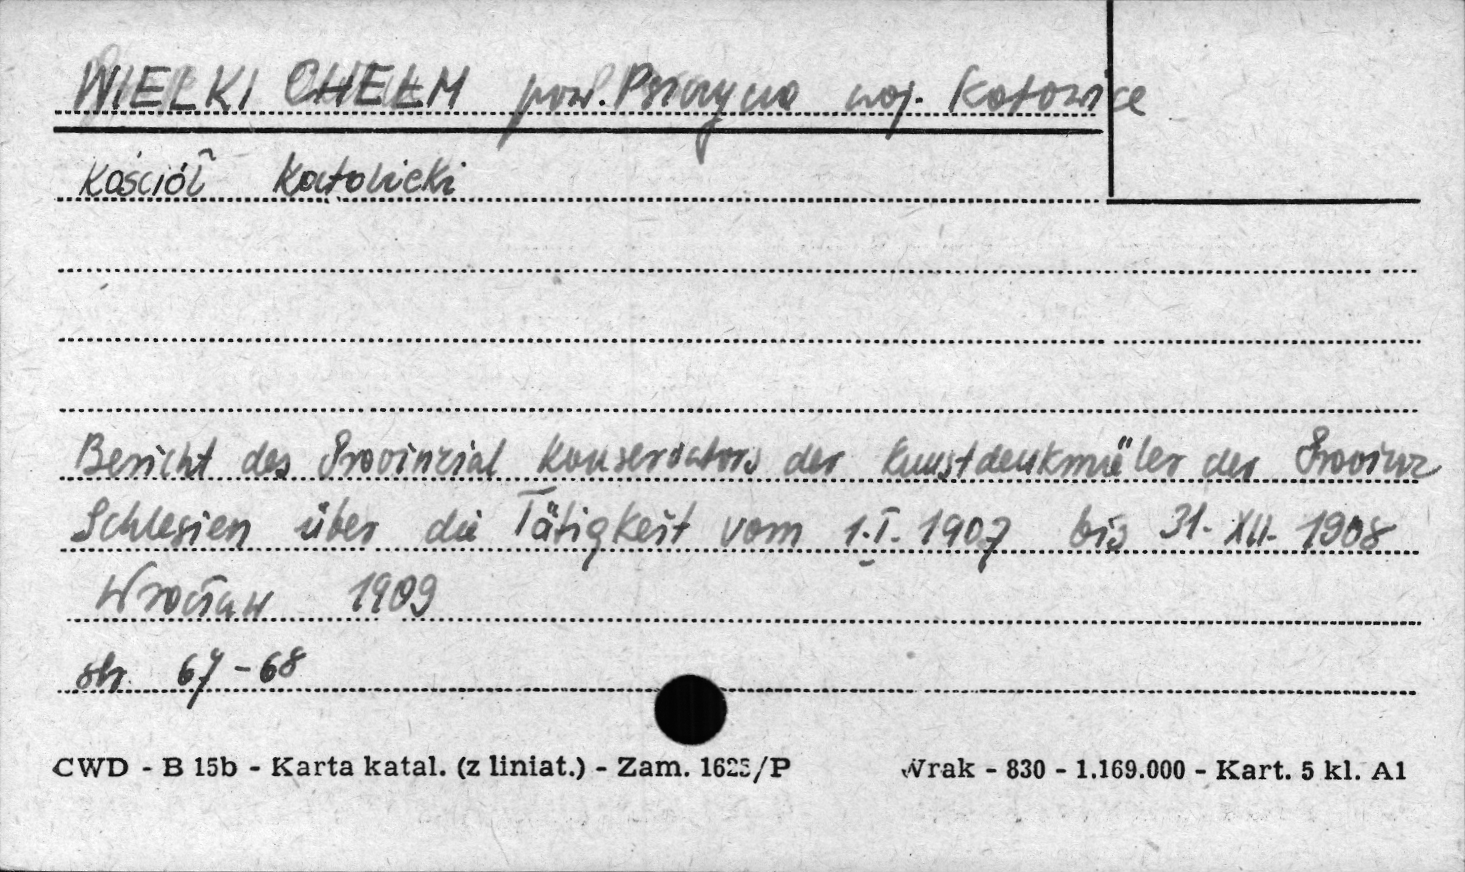 WIELKI CHEŁM pow. Pszczyna woj. Katowice
Kościół Katolicki
Bericht des Provinzial Konservators der Kunstdenkmäler der Provinz
Schlesien über die Tätigkeit vom 1.I. 1907 bis 31. XII. 1908
Wrocław 1909
str. 67-68
CWD - B 15b - Karta katal. (z liniat.) - Zam. 1625/P
Wrak - 830 - 1.169.000 - Kart. 5 kl. A1